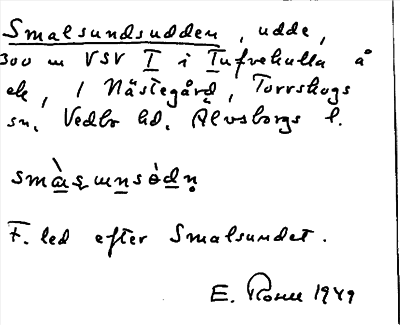 Smalsundsudden, udde,
300 m VSV I i Tufvehulla å
ek, 1 Nästegård, Torrskogs
sn. Vedbo hd. Älvsborgs l.
F. led efter Smalsundet.
E. 1949